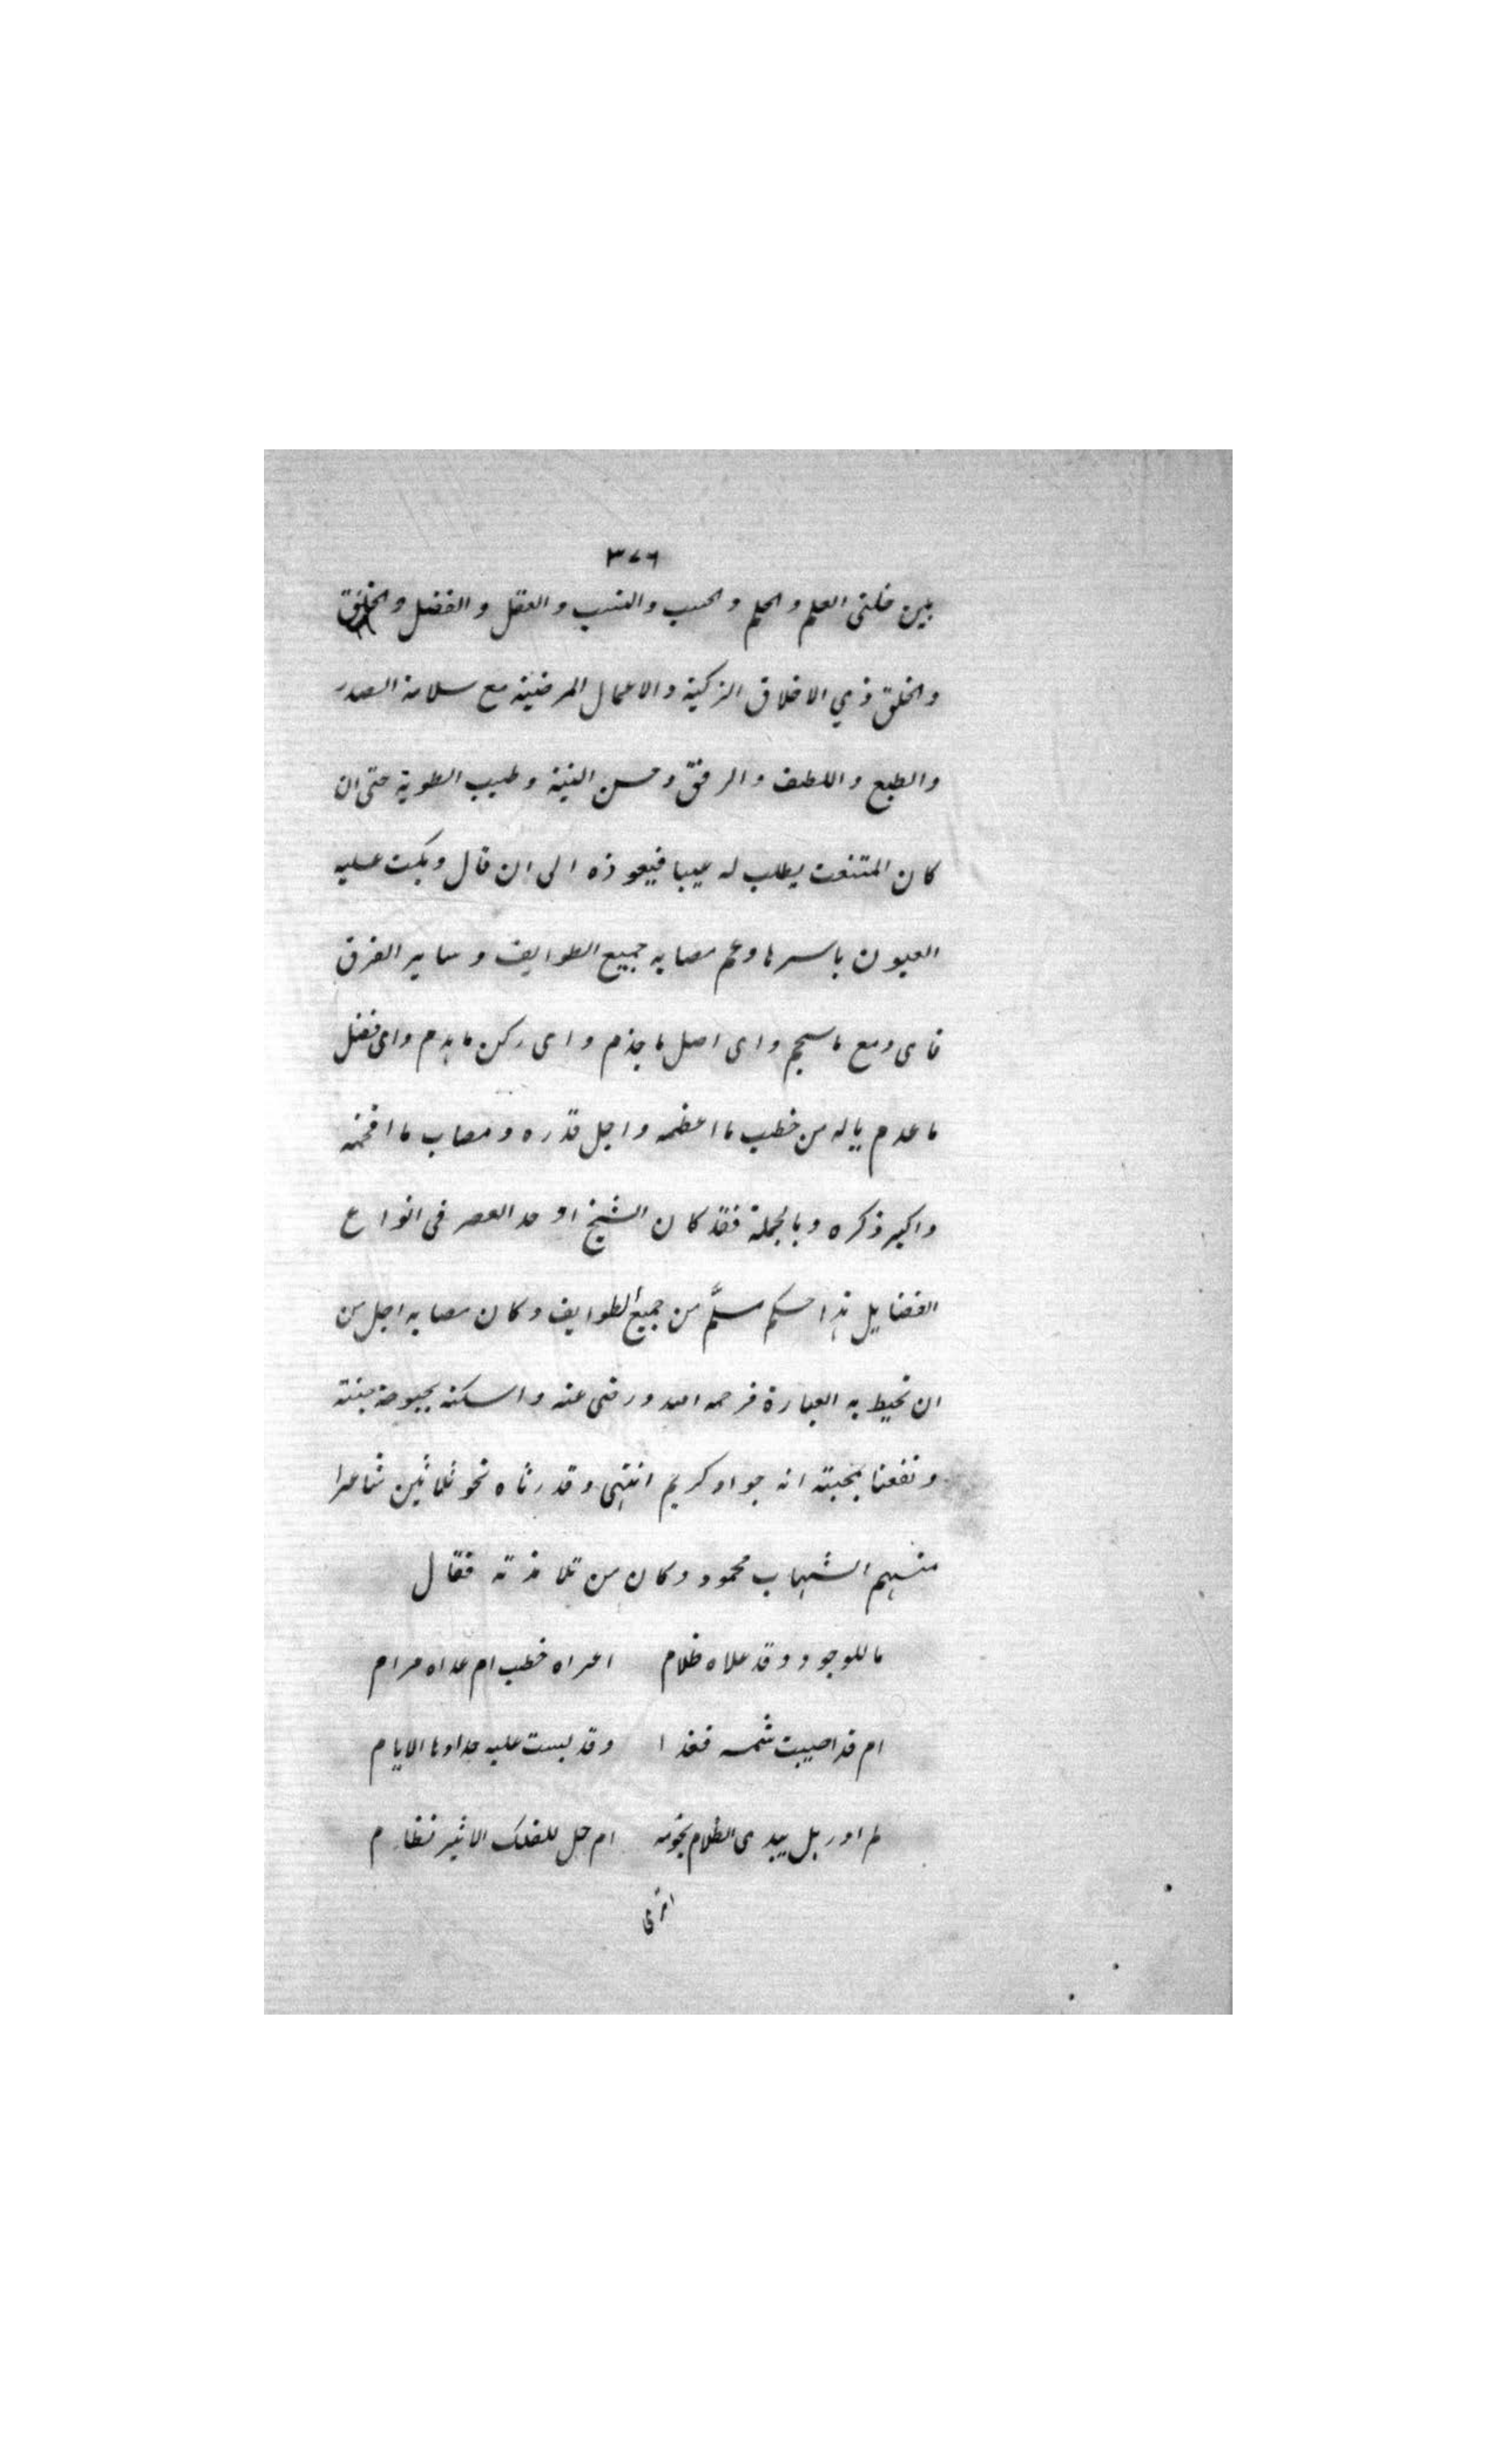 ٣٧٦
بين خلتى العلم والحلم والحسب والنسب والعقل والفضل والخلق
والخلق ذي الاخلاق الزكية والاعمال المرضية مع سلامة الصدر
والطبع واللطف والرفق وحسن النية وطيب الطوية حتى ان
كان المتعنت يطلب له عيبا فيعوذه الى ان قال وبكت عليه
العيون باسرها وعم مصابه جميع الطوايف وساير الفرق
فاى دمع ما سجم واى اصل ما جذم واى ركن ما هدم واى فضل
ما عدم ياله من خطب ما اعظمه واجل قدره ومصاب ما افخمه
واكبر ذكره وبالجملة فقد كان الشيخ اوحد العصر فى انواع
الفضايل هذا حكم مسلّم من جميع الطوايف وكان مصابه اجل من
ان تحيط به العبارة فرحمه الله ورضى عنه واسكنه بحبوحة جنته
ونفعنا بمحبته انه جواد كريم انتهى وقد رثاه نحو ثلاثين شاعرا
منهم الشهاب محمود وكان من تلامذته فقال
ما للوجود وقد علاه ظلام اعراه خطب ام عداه مرام
ام قد اصيبت شمسه فغدا وقد لبست عليه حدادها الايام
لم ادر هل يبدى الظلام نجومه ام حل للفلك الاثير نظام